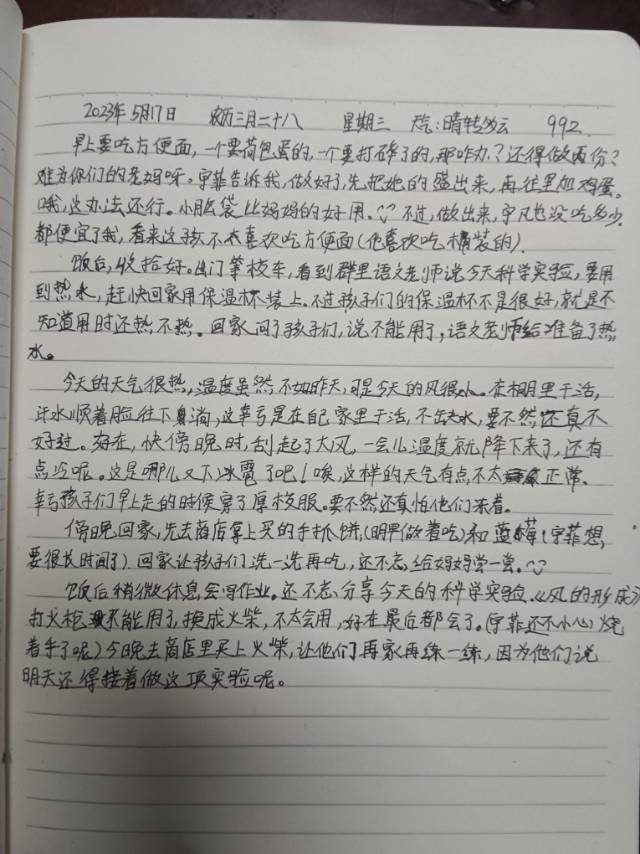 2023年5月17日 农历三月二十八 星期三 天气:晴转多云 992
早上要吃方便面,一个要荷包蛋的,一个要打碎了的,那咋办?还得做两份?
难为你们的老妈呀。宇菲告诉我,做好了,先把她的盛出来,再往里加鸡蛋。
哦,这办法还行。小脑袋比妈妈的好用。不过,做出来,宇凡也没吃多少,
都便宜了我,看来这孩子不太喜欢吃方便面(他喜欢吃桶装的)。
饭后,收拾好。出门等校车,看到群里语文老师说今天科学实验,要用
到热水,赶快回家用保温杯装上。不过孩子们的保温杯不是很好,就是不
知道用时还热不热。回家问了孩子们,说不能用了,语文老师给准备了热
水。
今天的天气很热,温度虽然不如昨天,可是今天的风很小。在棚里干活,
汗水顺着脸往下淌,这幸亏是在自己家里干活,不缺水,要不然还真不
好过。好在,快傍晚时,刮起了大风,一会儿温度就降下来了,还有
点冷呢。这是哪儿又下冰雹了吧!唉,这样的天气有点不太正常。
幸亏孩子们早上走的时候穿了厚校服。要不然还真怕他们冻着。
傍晚回家,先去商店拿上买的手抓饼,(明早做着吃)和蓝莓(宇菲想
要很长时间了)回家让孩子们洗一洗再吃,还不忘给妈妈尝一尝。
饭后稍微休息会写作业。还不忘分享今天的科学实验《风的形成》
打火枪不能用了,换成火柴,不太会用,好在最后都会了。(宇菲还不小心烧
着手了呢)今晚去商店里买上火柴,让他们再家再练一练,因为他们说
明天还得接着做这项实验呢。